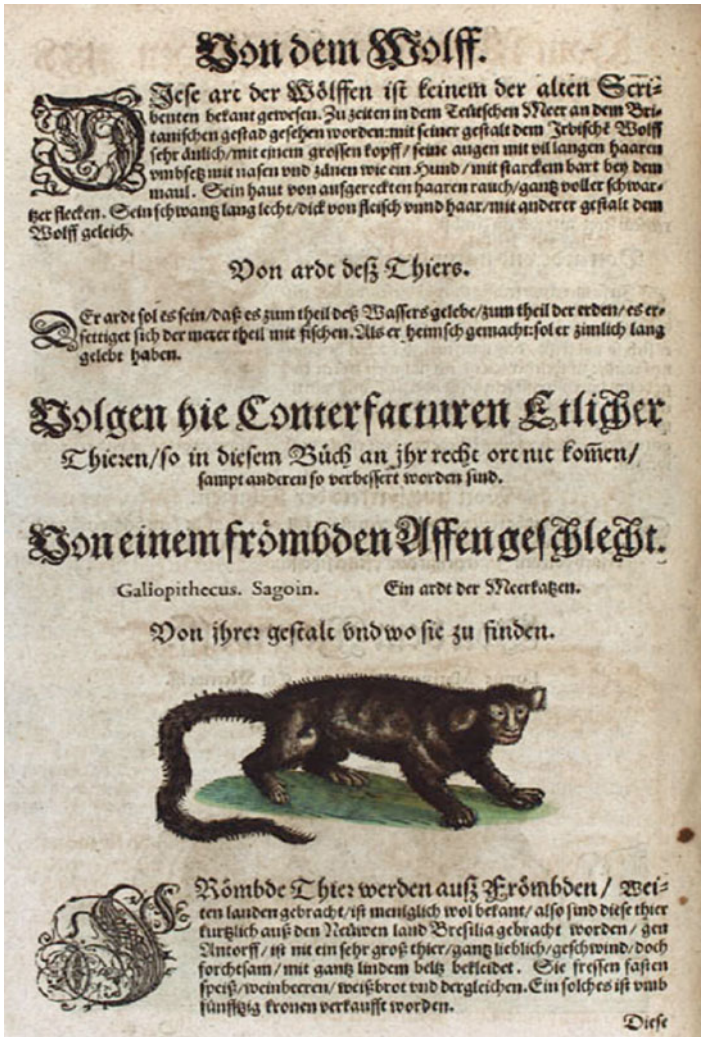 Von dem Wolff.
DIese art der Wölffen ist keinem der alten Scri-
benten bekant gewesen. Zu zeiten in dem Teütschen Meer an dem Bri-
tanischen gestad gesehen worden: mit seiner gestalt dem Irdischē Wolff
sehr änlich/mit einem grossen kopff/ seine augen mit vil langen haaren
vmbsetz mit nasen vnd zänen wie ein Hund/mit starckem bart bey dem
maul. Sein haut von aufgereckten haaren rauch/gantz voller schwar-
tzer flecken. Sein schwantz lang lecht/dick von fleisch vnnd haar/mit anderer gestalt dem
Wolff geleich.
Von ardt deß Thiers.
DEr ardt sol es sein/daß es zum theil deß Wassers gelebe/zum theil der erden/es er-
settiget sich der merer theil mit fischen. Als er heimsch gemacht: sol er zimlich lang
gelebt haben.
Volgen hie Conterfacturen Etlicher
Thieren/so in diesem Bůch an jhr recht ort nit kom̄en/
sampt anderen so verbessert worden sind.
Von einem frömbden Affen geschlecht.
Galiopithecus. Sagoin. Ein ardt der Meerkatzen.
Von jhrer gestalt vnd wo sie zu finden.
FRömbde Thier werden auß Frömbden/ wei-
ten landen gebracht/ist meniglich wol bekant/also sind diese thier
kurtzlich auß den Neüwen land Bresilia gebracht worden/ gen
Antorff/ ist nit ein sehr groß thier/gantz lieblich/geschwind/doch
forchtsam/mit gantz lindem beltz bekleidet. Sie fressen fasten
speiß/weinbeeren/weißbrot vnd dergleichen. Ein solches ist vmb
fünfftzig kronen verkaufft worden.
Diese